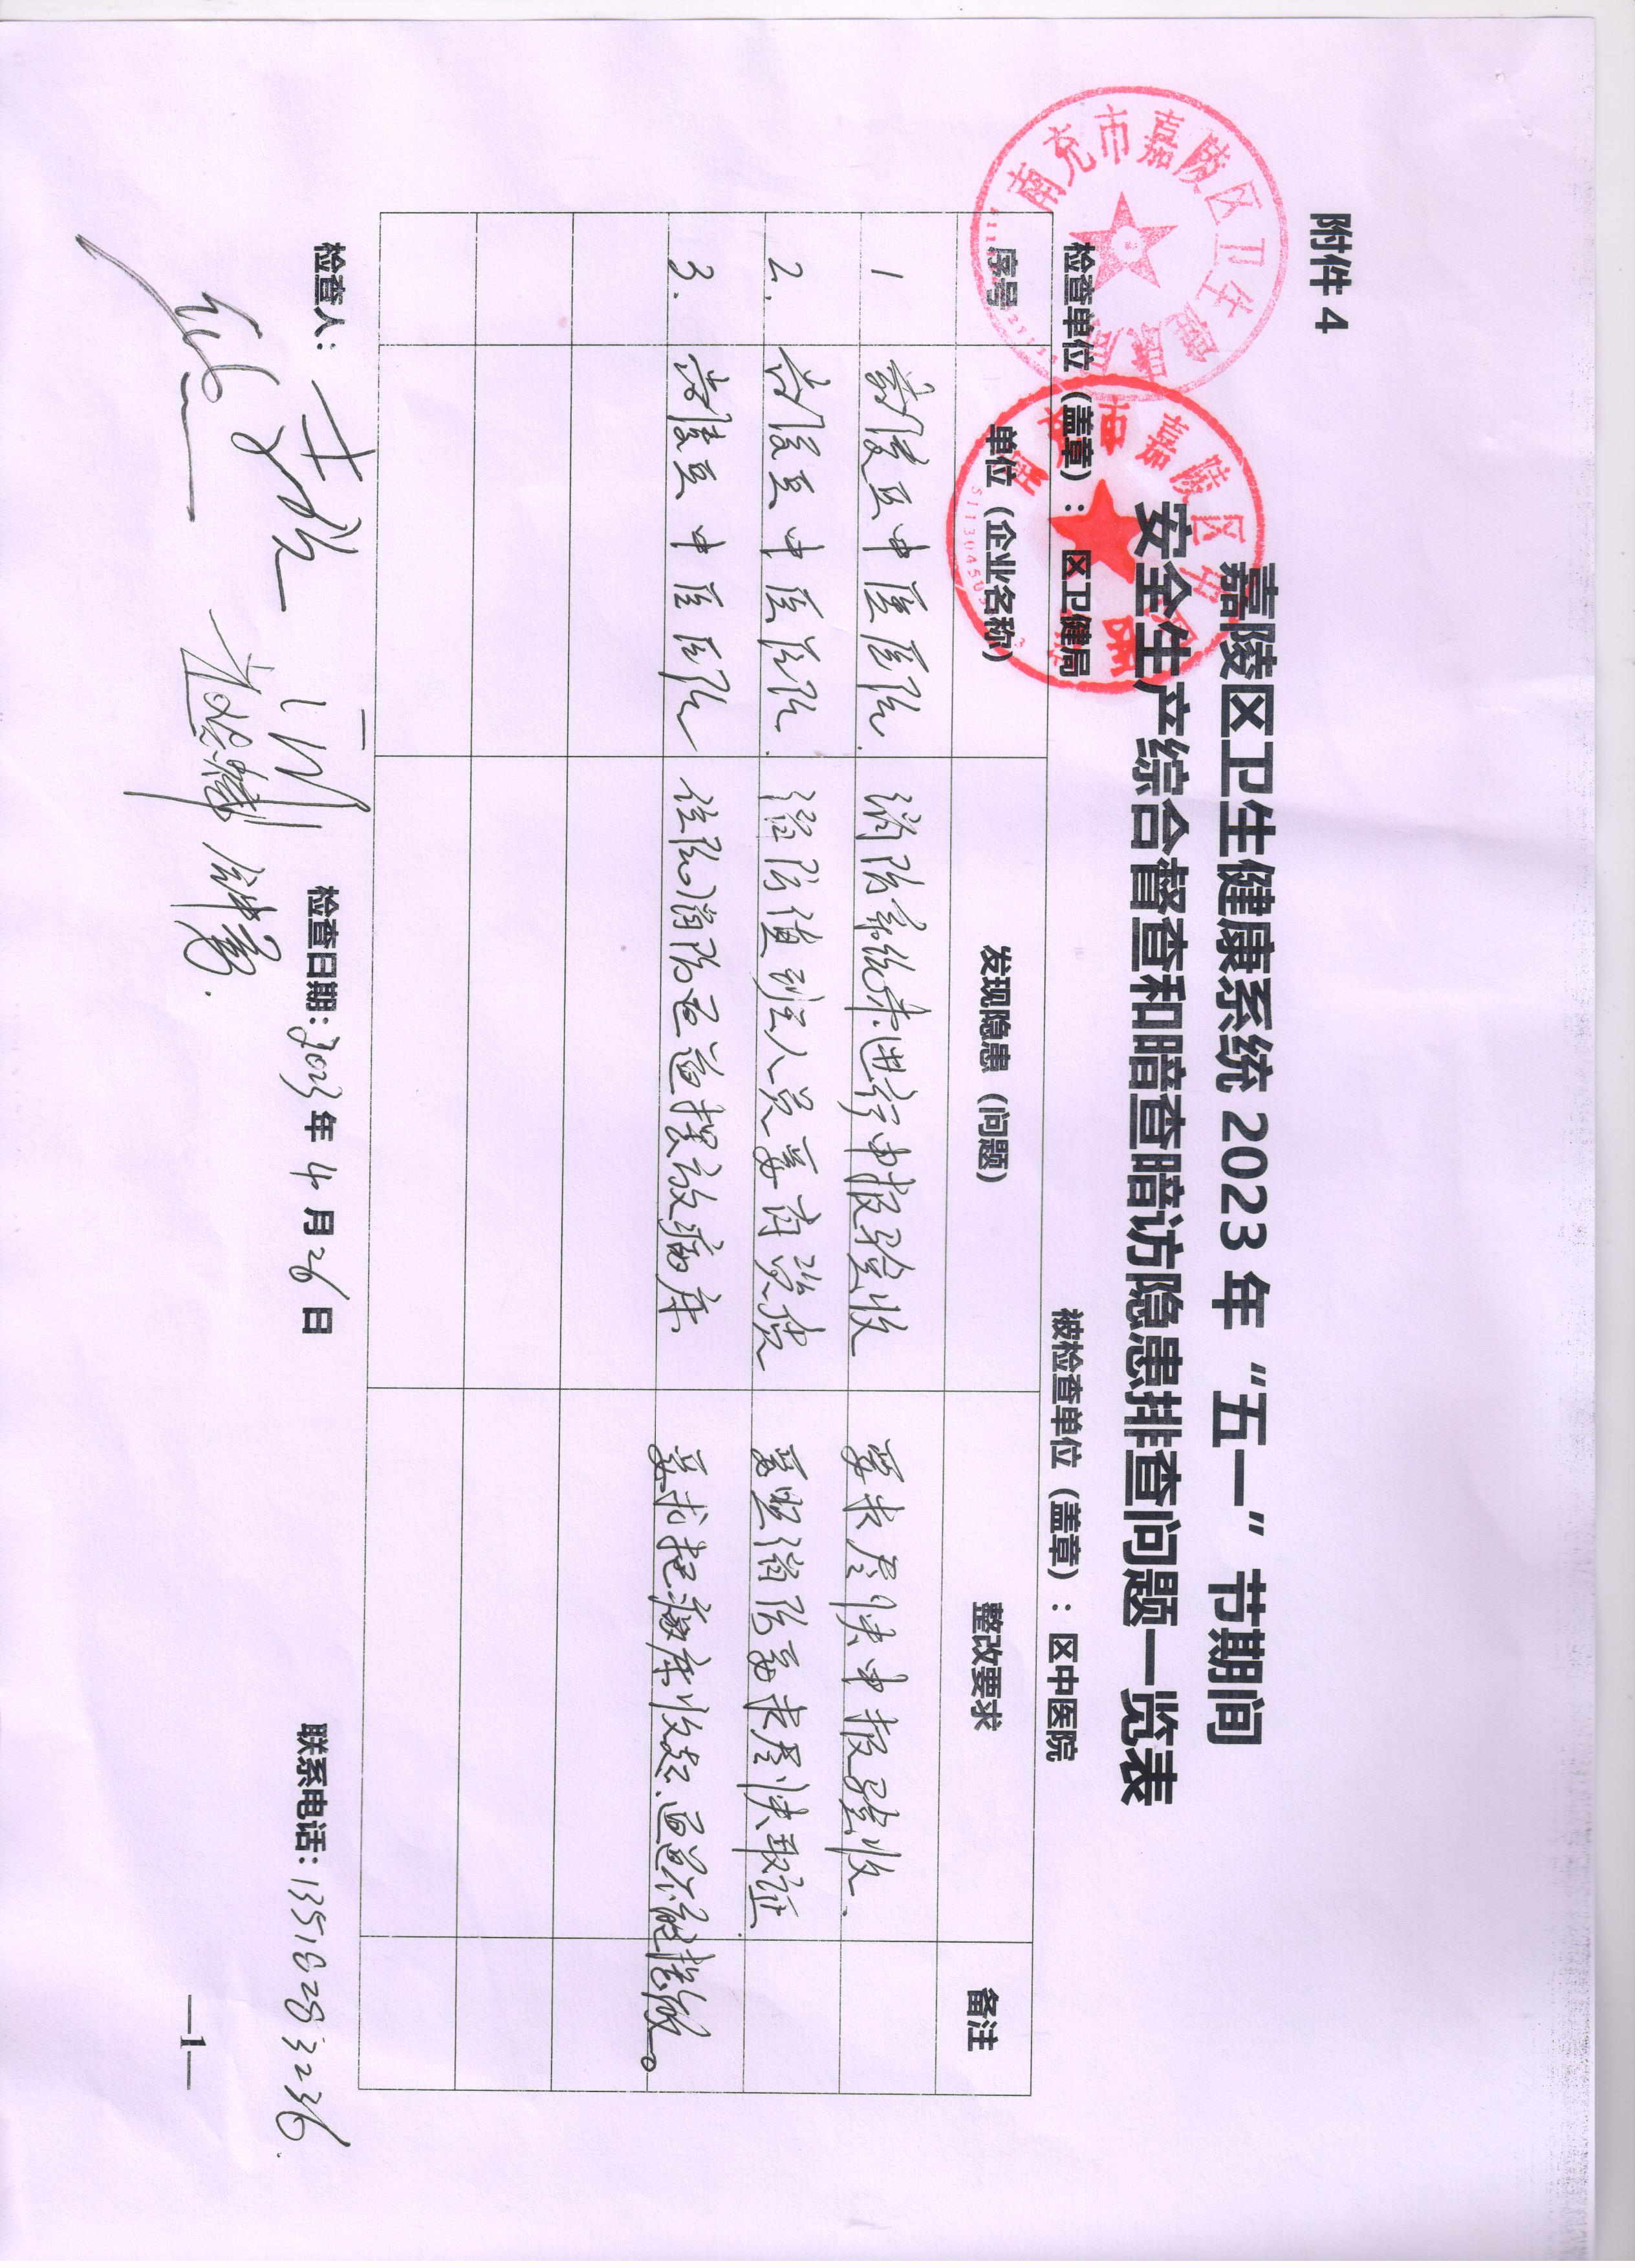 附件 4
嘉陵区卫生健康系统 2023 年“五一”节期间
安全生产综合督查和暗查暗访隐患排查问题一览表
检查单位（盖章）：区卫健局 被检查单位（盖章）：区中医院
序号 单位（企业名称） 发现隐患（问题） 整改要求 备注
1 嘉陵区中医医院 消防系统未进行申报验收 要求尽快申报验收.
2. 嘉陵区中医医院. 消防值班人员要有资质 要照消防要求尽快取证
3. 嘉陵区中医医院 住院消防通道摆放病床 要求把病床收起.通道不能摆放。
检查人： 检查日期：2023年 4 月 26 日 联系电话：13518283236.
—1—
南充市嘉陵区卫生健康局
市嘉陵区中医